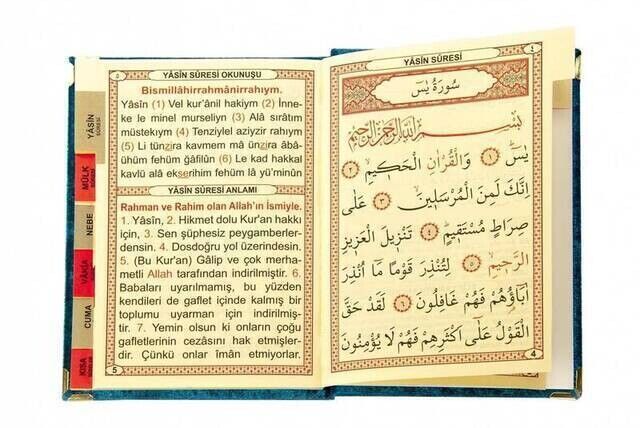 YÂSİN SÛRESİ
٤
سُورَةُ يٰسۤ
بِسْمِ اللّٰهِ الرَّحْمٰنِ الرَّحٖيمِ
يٰسۤ ﴿١﴾ وَالْقُرْاٰنِ الْحَكٖيمِ ﴿٢﴾
اِنَّكَ لَمِنَ الْمُرْسَلٖينَ ﴿٣﴾ عَلٰى
صِرَاطٍ مُسْتَقٖيمٍ ﴿٤﴾ تَنْزٖيلَ الْعَزٖيزِ
الرَّحٖيمِ ﴿٥﴾ لِتُنْذِرَ قَوْمًا مَۤا اُنْذِرَ
اٰبَۤاؤُهُمْ فَهُمْ غَافِلُونَ ﴿٦﴾ لَقَدْ حَقَّ
الْقَوْلُ عَلٰۤى اَكْثَرِهِمْ فَهُمْ لَا يُؤْمِنُونَ
4
٥
YÂSİN SÛRESİ OKUNUŞU
Bismillâhirrahmânirrahıym.
Yâsîn (1) Vel kur'ânil hakiym (2) İnne-
ke le minel murseliyn (3) Alâ sırâtım
müstekıym (4) Tenziylel aziyzir rahıym
(5) Li tünzira kavmem mâ ünzira âbâ-
ühüm fehüm ğâfilûn (6) Le kad hakkal
kavlü alâ ekserihim fehüm lâ yü'minûn
YÂSİN SÛRESİ ANLAMI
Rahman ve Rahim olan Allah'ın İsmiyle.
1. Yâsîn, 2. Hikmet dolu Kur'an hakkı
için, 3. Sen şüphesiz peygamberler-
densin. 4. Dosdoğru yol üzerindesin.
5. (Bu Kur'an) Gâlip ve çok merha-
metli Allah tarafından indirilmiştir. 6.
Babaları uyarılmamış, bu yüzden
kendileri de gaflet içinde kalmış bir
toplumu uyarman için indirilmiş-
tir. 7. Yemin olsun ki onların çoğu
gafletlerinin cezasını hak etmişler-
dir. Çünkü onlar îmân etmiyorlar.
5
YÂSİN
SÛRESİ
MÜLK
NEBE
VAKIA
CUMA
KISA